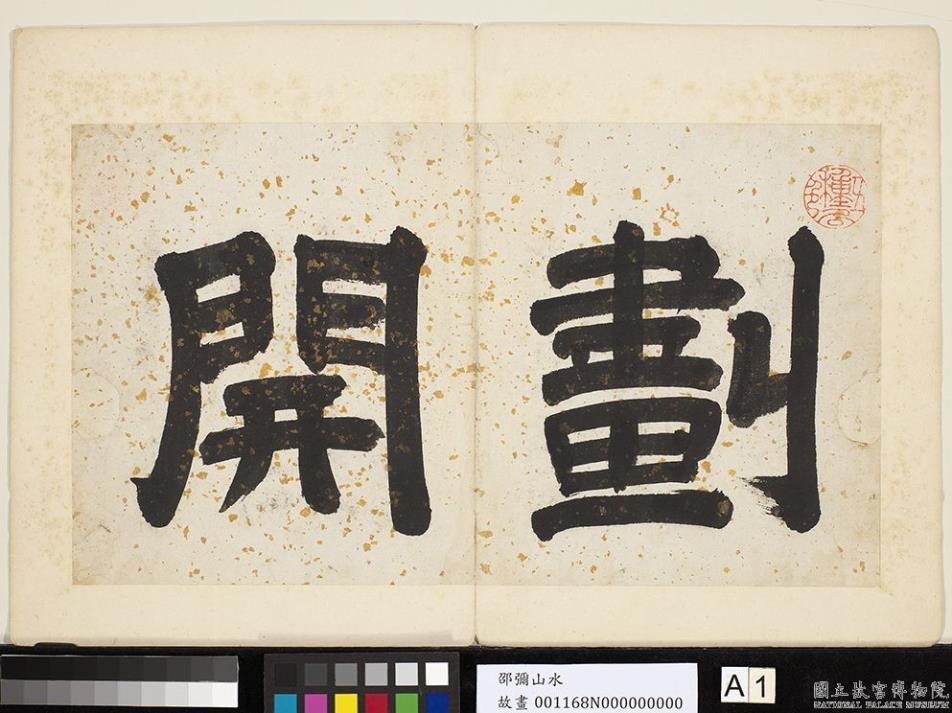 劃開
邵彌山水
故畫 001168N000000000
A 1
國立故宮博物院
NATIONAL PALACE MUSEUM